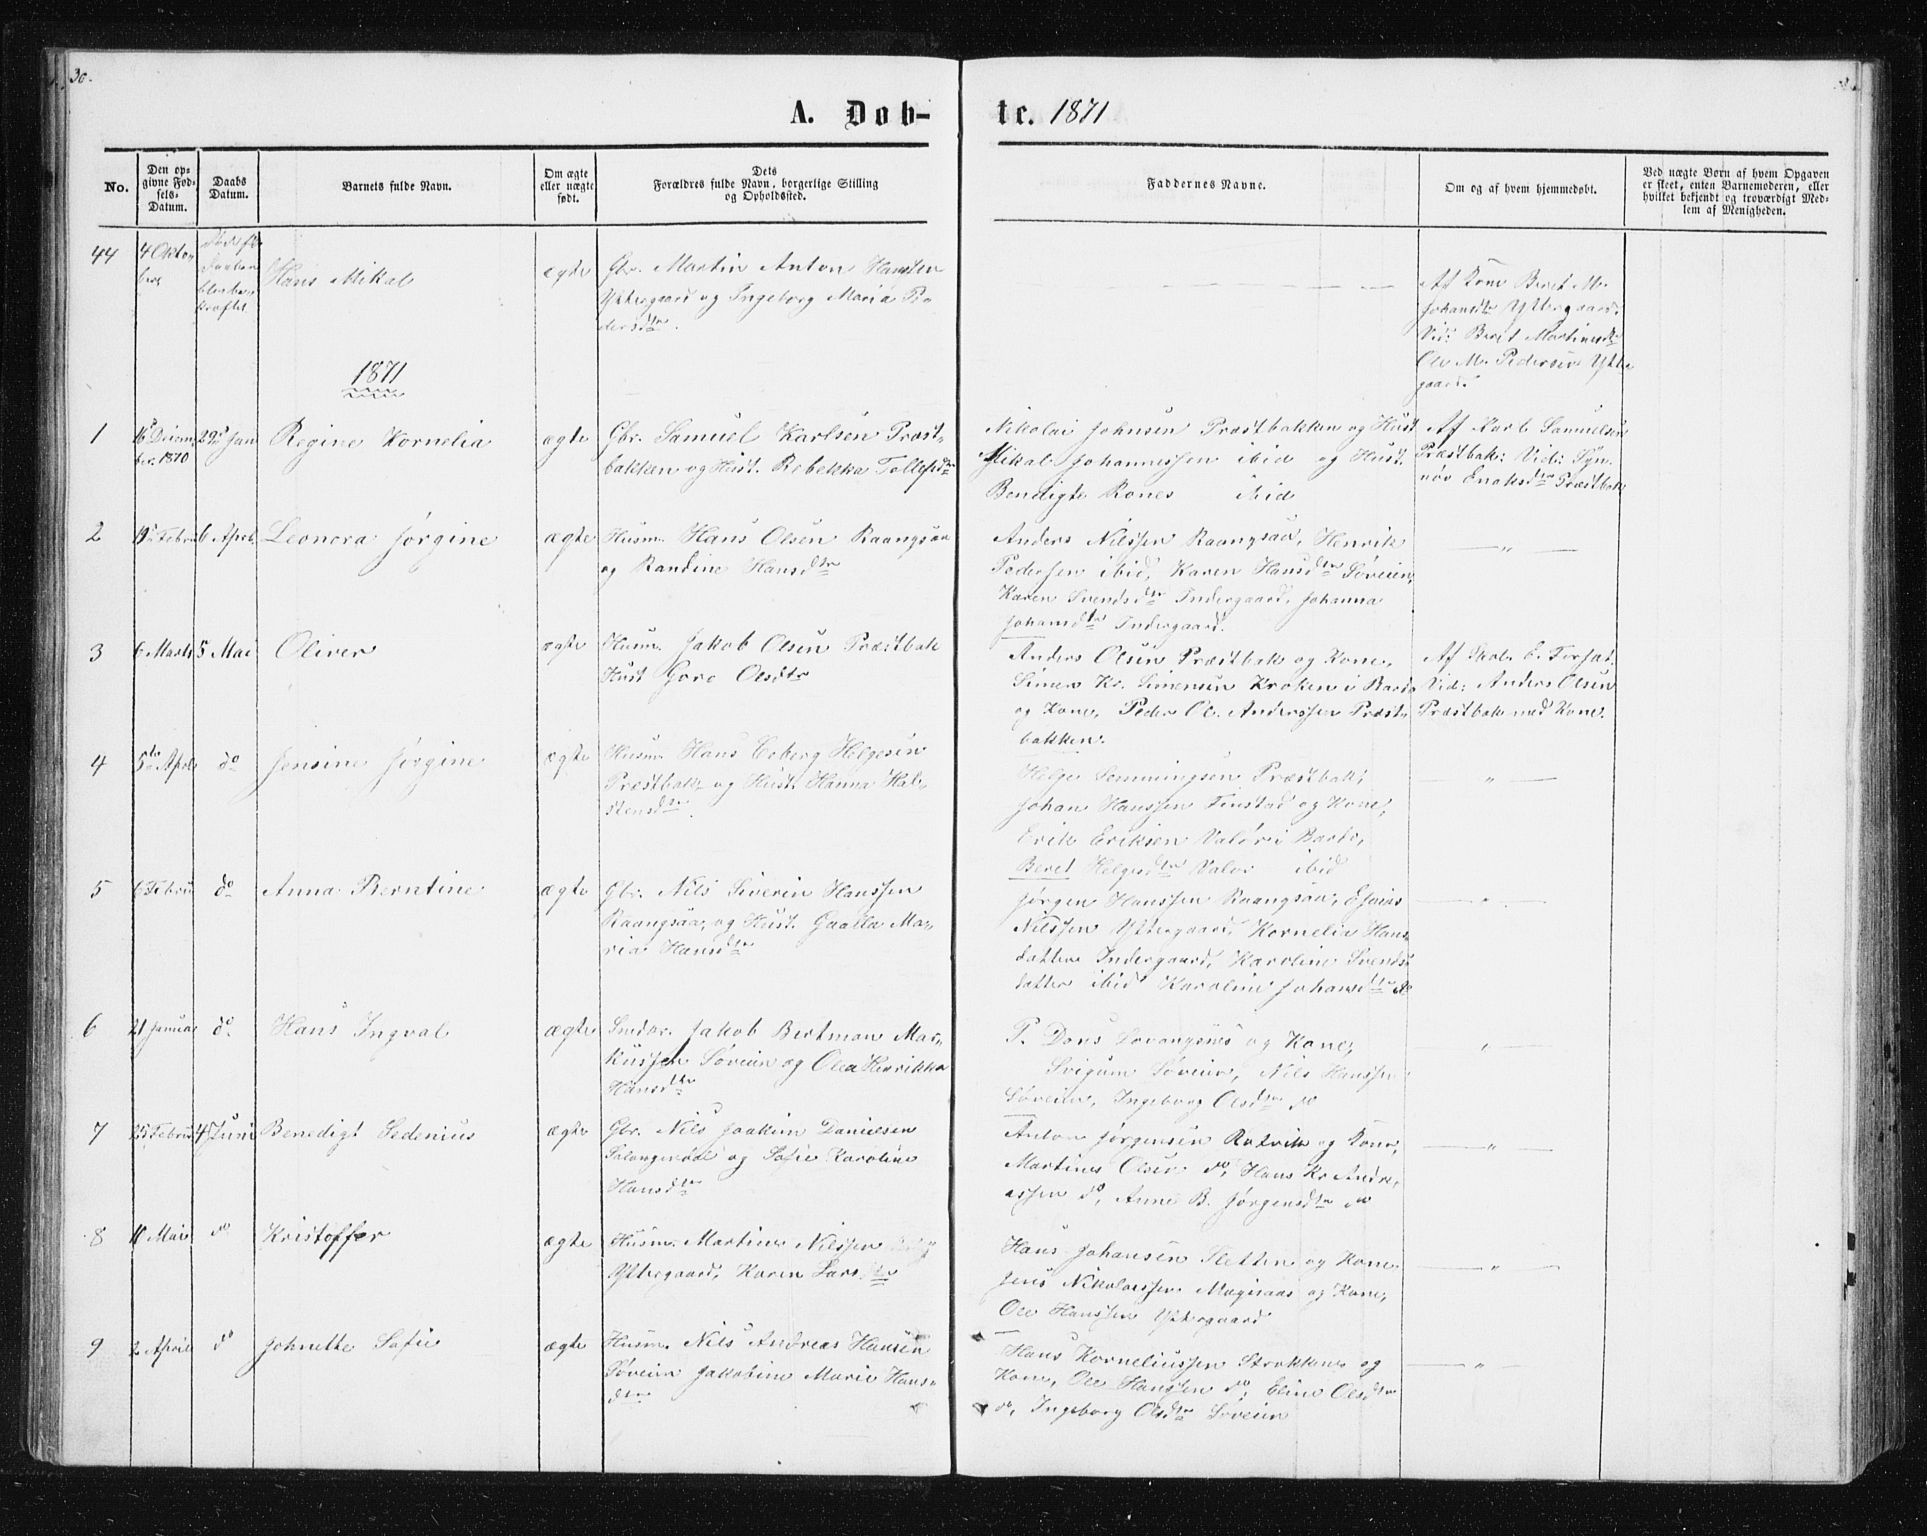 30.
A. Døb-
te. 1871
No.
Den op-
givne Fød-
sels-
Datum.
Daabs
Datum.
Barnets fulde Navn.
Om ægte
eller uægte
født.
Dets
Forældres fulde Navn, borgerlige Stilling
og Opholdssted.
Faddernes Navne.
Om og af hvem hjemmedøbt.
Ved uægte Børn af hvem Opgaven
er skeet, enten Barnemoderen, eller
hvilket bekjendt og troværdigt Med-
lem af Menigheden.
44
4 Okto
ber
Hans Mikal
ægte
Gbr. Martin Anton Hansen
Yttergaard og Ingeborg Maria Pe
dersdtr.
Af Kone Beret M.
Johansdtr Yttergaard.
Vid: Beret Martinsdtr
Ole M. Pedersen Ytter
gaard.
1871
1
16 Decem
ber. 1870
29 Jan
Regine Kornelia
ægte
Gbr. Samuel Karlsen Præst-
bakken og Hust. Rebekka Tollefsdtr
Nikolai Johnsen Præstbakken og Hust
Mikal Johannessen ibid og Hust.
Bendigte Rones ibid
Af Karl Samuelsen
Præstbak: Vid: Syn-
nøv Enoksdtr Præstbak
2
19 Febru
6 April
Leonora Jørgine
ægte
Husm. Hans Olsen Raangsaa
og Randine Hansdtr
Anders Nilssen Raangsaa, Henrik
Pedersen ibid, Karen Hansdtr Søveien,
Karen Svendsdtr Indergaard, Johanna
Johansdtr Indergaard.
— „ —
3
6 Marts
5 Mai
Oliver
ægte
Husm. Jakob Olsen Præstbak
Hust Goro Olsdtr
Anders Olsen Præstbak og Kone,
Simen Kr. Simensen Kroken i Bardo
og Kone, Peder Ol. Anderssen Præst-
bakken.
Af Skol. E. Forsæt.
Vid: Anders Olsen
Præstbak med Kone.
4
5 April
do
Jensine Jørgine
ægte
Husm Hans Eoberg Helgesen
Præstbak og Hust. Hanna Hal-
stensdtr.
Helge Semmingsen Præstbak,
Johan Hanssen Finstad og Kone,
Erik Eriksen Valør i Bardo,
Beret Helgesdtr Valør ibid
— „ —
5
6 Febru
do
Anna Berntine
ægte
Gbr. Nils Siverin Hanssen
Raangsaa, og Hust. Gjaalla Ma-
ria Hansdtr
Jørgen Hanssen Raangsaa, Esaias
Nilssen Yttergaard, Kornelia Hans
datter Indergaard, Karoline Svends
datter ibid Karoline Johansdtr do
— „ —
6
21 Januar
do
Hans Ingval
ægte
Jakob Bertman Mar-
kussen Søveien og Olea Henrikka
Hansdtr
P. Dons Lovangsnes og Kone,
Søveien, Nils Hanssen
Søveien, Ingeborg Olsdtr do
— „ —
7
25 Febru
4 Juni
Benedigt Sedenius
ægte
Gbr. Nils Joakim Danielsen
og Sofie Karoline
Hansdtr
Anton Jørgensen Rotvik og Kone,
Martines Olsen do, Hans Kr Andre-
assen do, Anne B. Jørgensdtr do
— „ —
8
11 Mai
do
Kristoffer
ægte
Husm. Martines Nilssen
Yttergaard, Karen Larsdtr
Hans Johansen Sletten og Kone
Jens Nikolaissen Moginaas og Kone,
Ole Hanssen Yttergaard
— „ —
9
2 April
do
Johnette Sofie
ægte
Husm. Nils Andreas Hansen
Søveien Jakobine Marie Hans-
dtr
Hans Korneliussen Strokkenes og
Kone, Ole Hanssen do, Eline Olsdtr
do, Ingeborg Olsdtr Søveien
— „ —